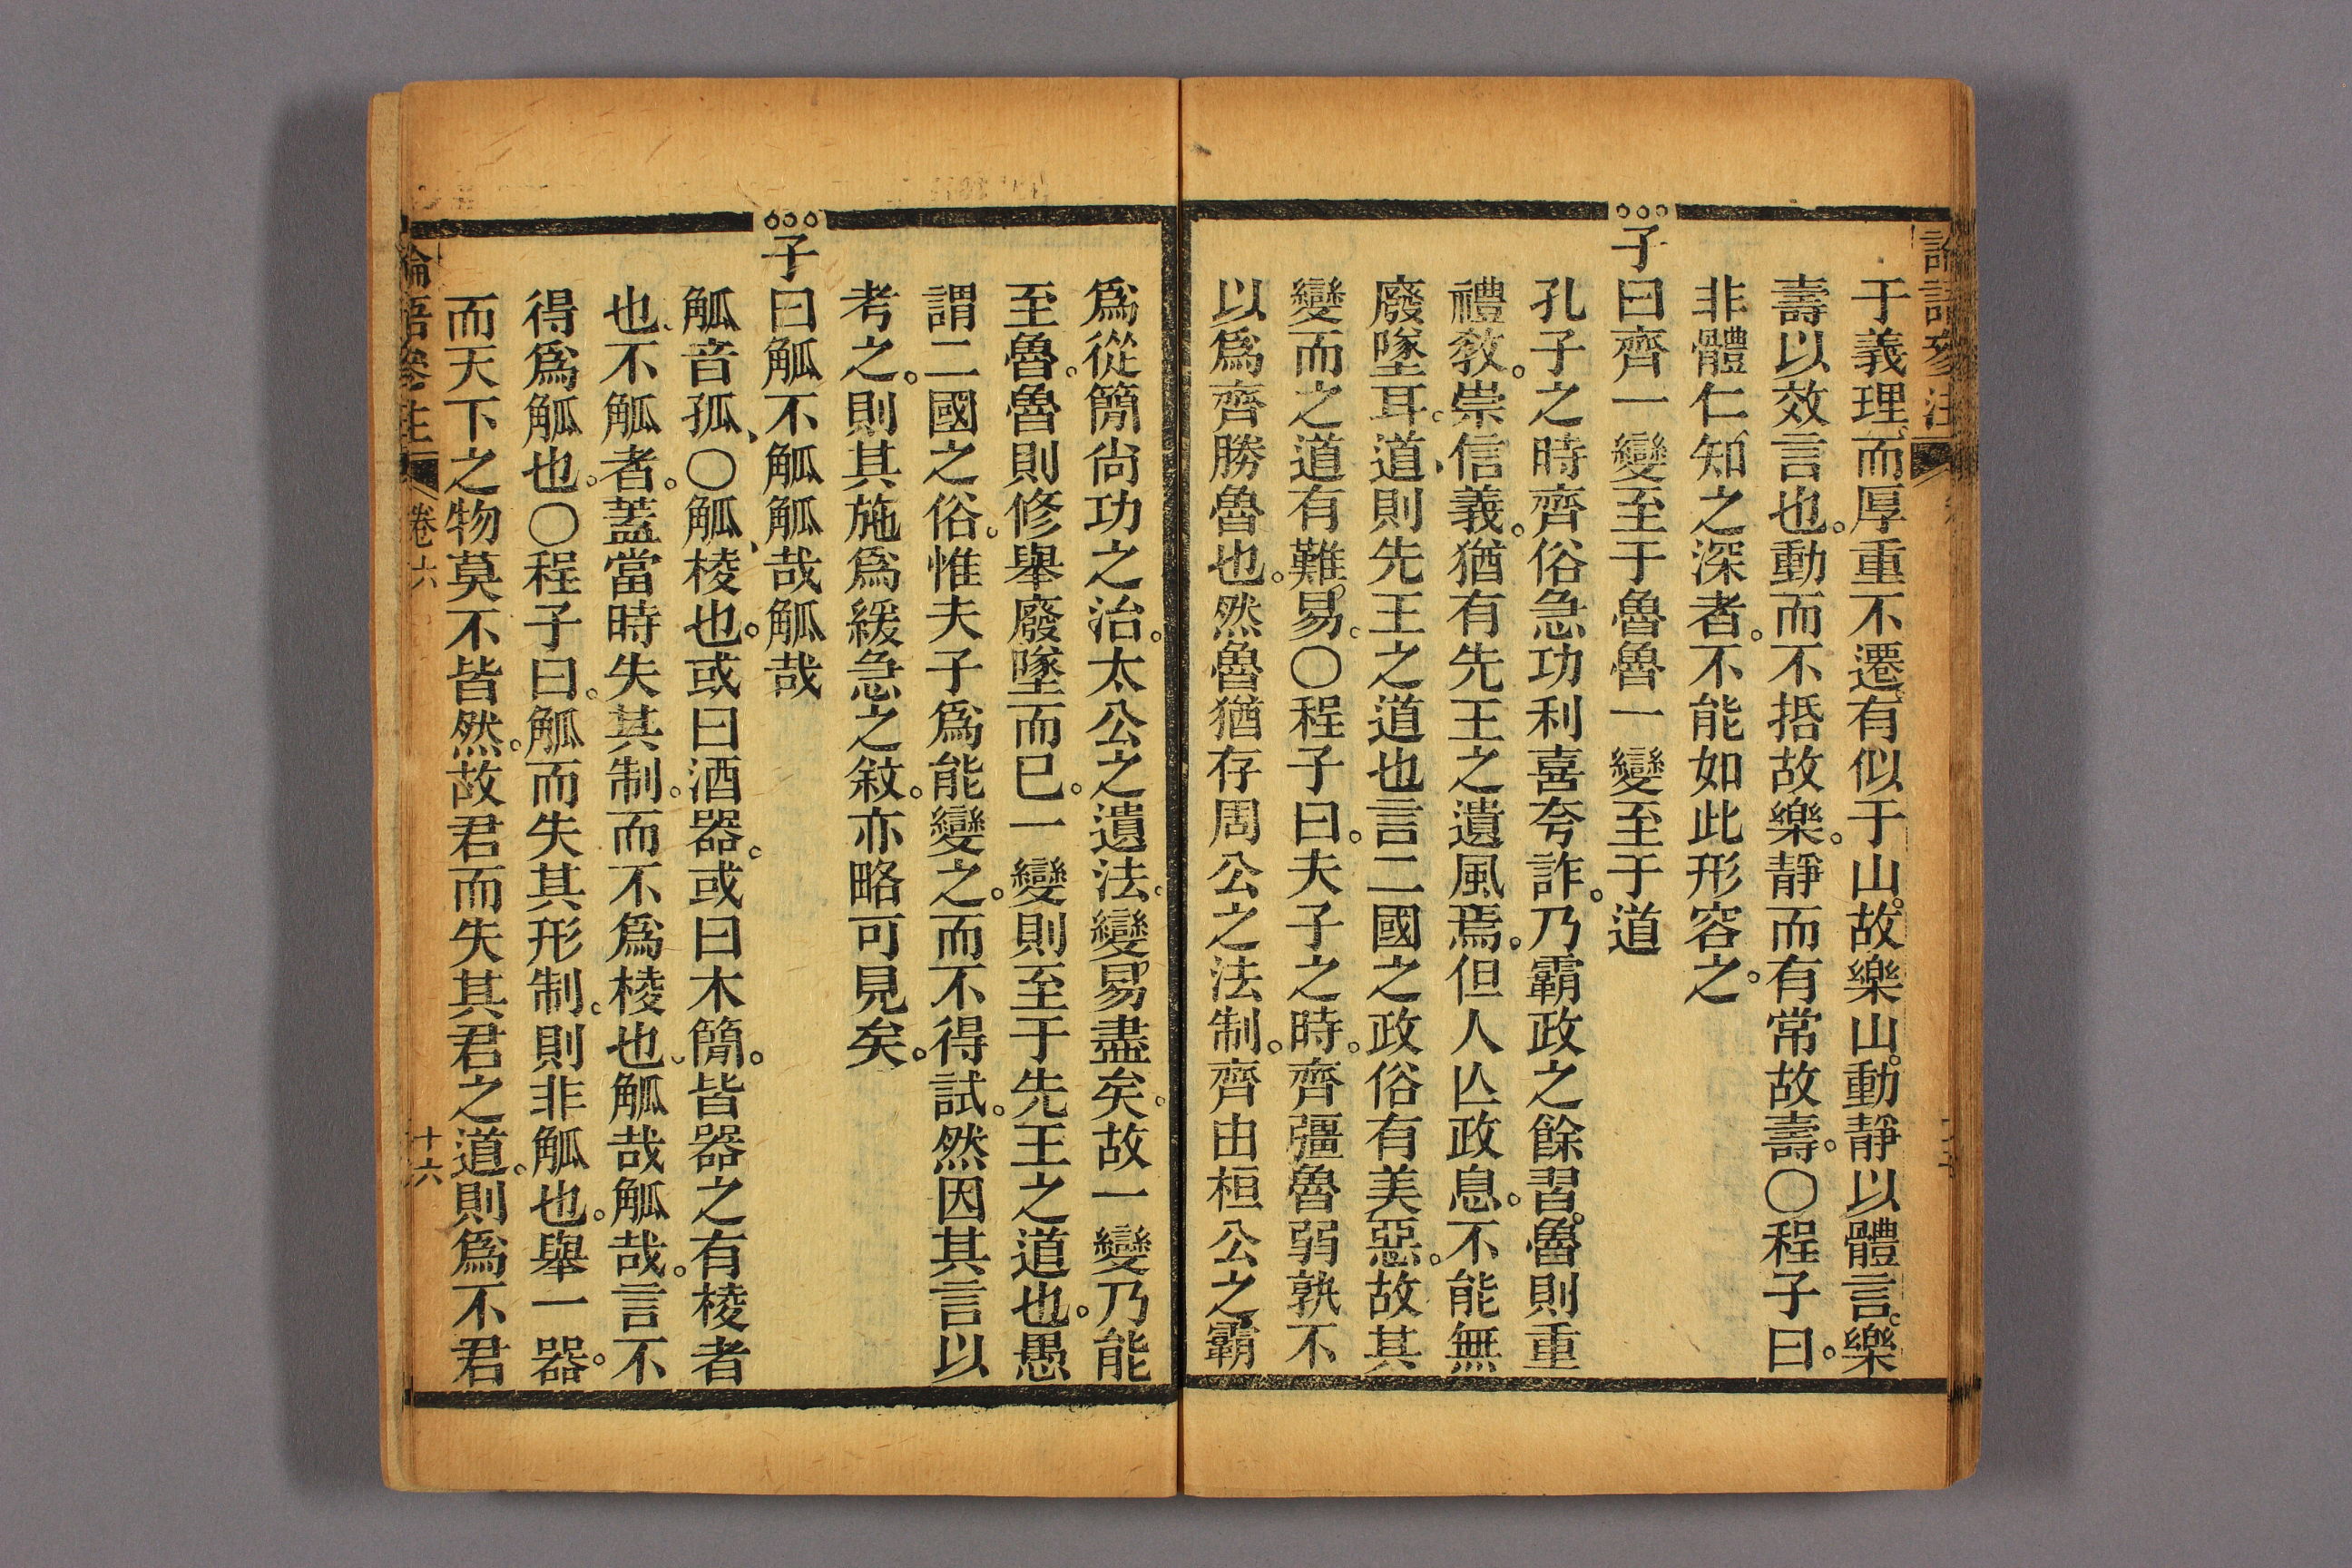 于義理、而厚重不遷、有似于山。故樂山。動靜以體言。樂
壽以效言也。動而不括故樂。靜而有常故壽。〇程子曰。
非體仁知之深者。不能如此形容之。
子曰齊一變至于魯魯一變至于道
孔子之時齊俗急功利喜夸詐。乃霸政之餘習。魯則重
禮敎。崇信義。猶有先王之遺風焉。但人亾政息。不能無
廢墜耳。道、則先王之道也言二國之政俗有美惡。故其
變而之道有難。易。〇程子曰。夫子之時。齊彊魯弱孰不
以爲齊勝魯也。然魯猶存周公之法制。齊由桓公之霸
爲從簡尙功之治。太公之遺法。變易盡矣。故一變乃能
至魯。魯則修舉廢墜而已。一變則至于先王之道也。愚
謂二國之俗。惟夫子爲能變之。而不得試。然因其言以
考之。則其施爲緩急之敘。亦略可見矣。
子曰觚不觚觚哉觚哉
觚音孤、〇觚、棱也。或曰酒器。或曰木簡。皆器之有棱者
也、不觚者。蓋當時失其制。而不爲棱也、觚哉觚哉。言不
得爲觚也。〇程子曰。觚而失其形制。則非觚也。舉一器。
而天下之物莫不皆然。故君而失其君之道。則爲不君
論語參注
卷六
十六